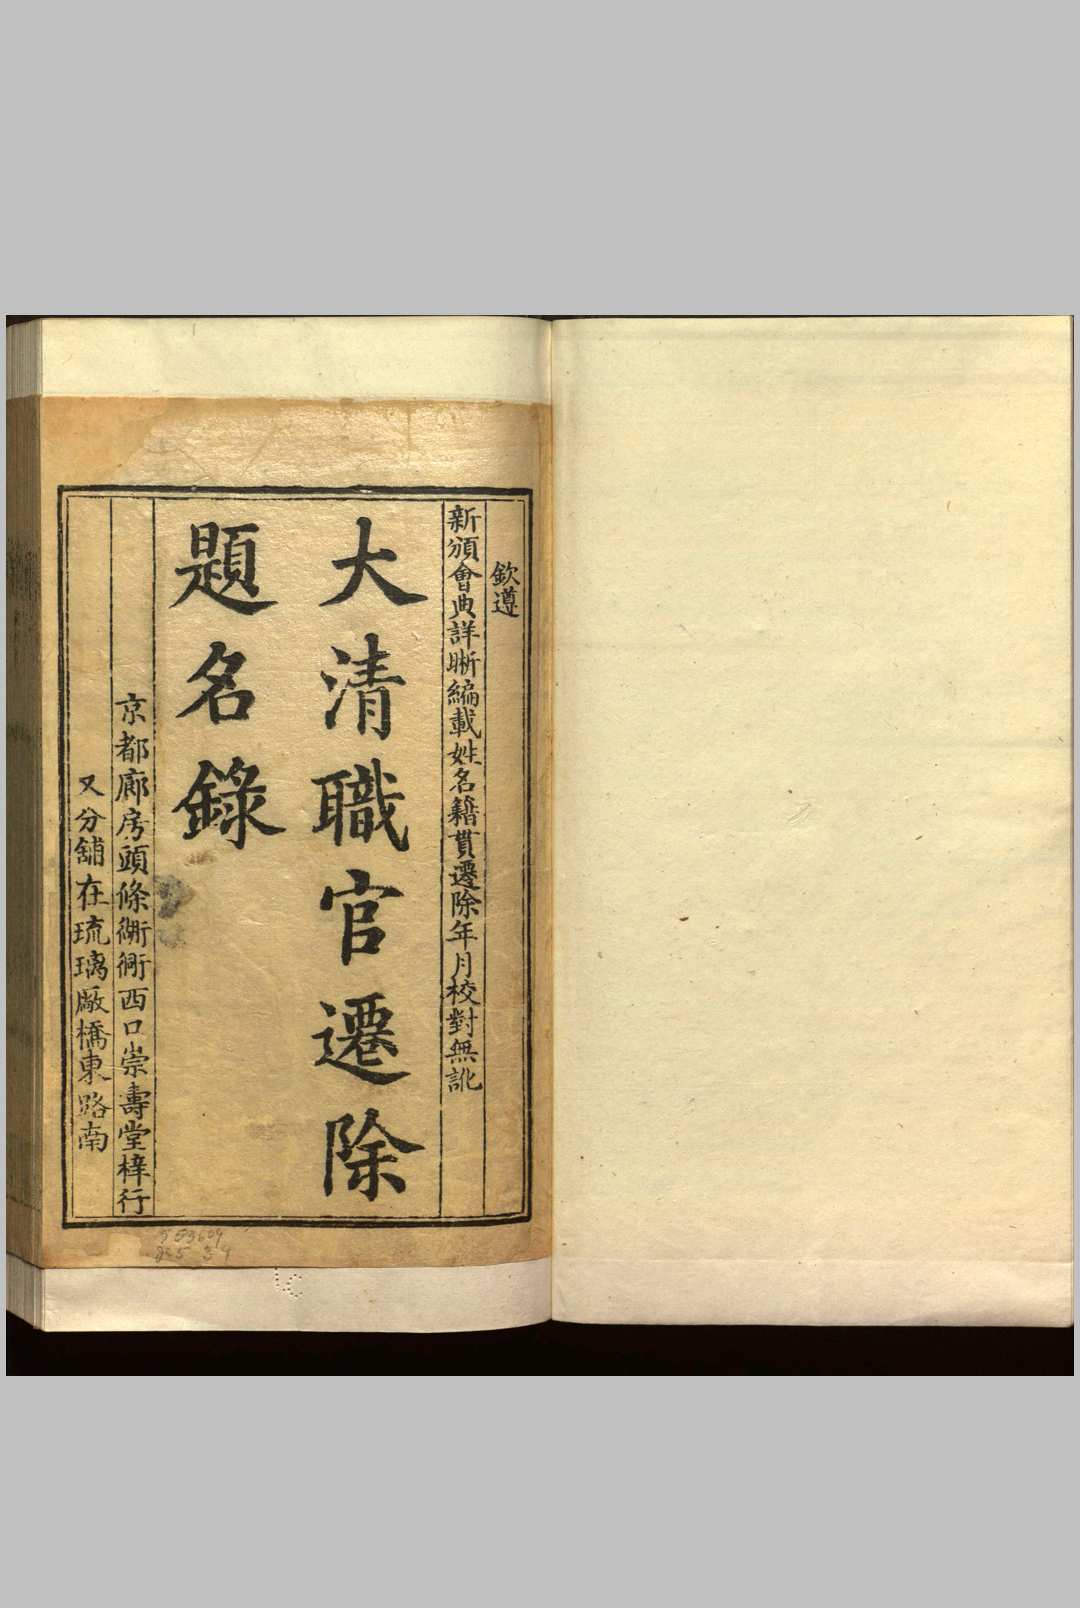 欽遵
新頒會典詳晰編載姓名籍貫遷除年月校對無訛
大清職官遷除
題名錄
京都廊房頭條衚衕西口崇壽堂梓行
又分舖在琉璃厰橋東路南